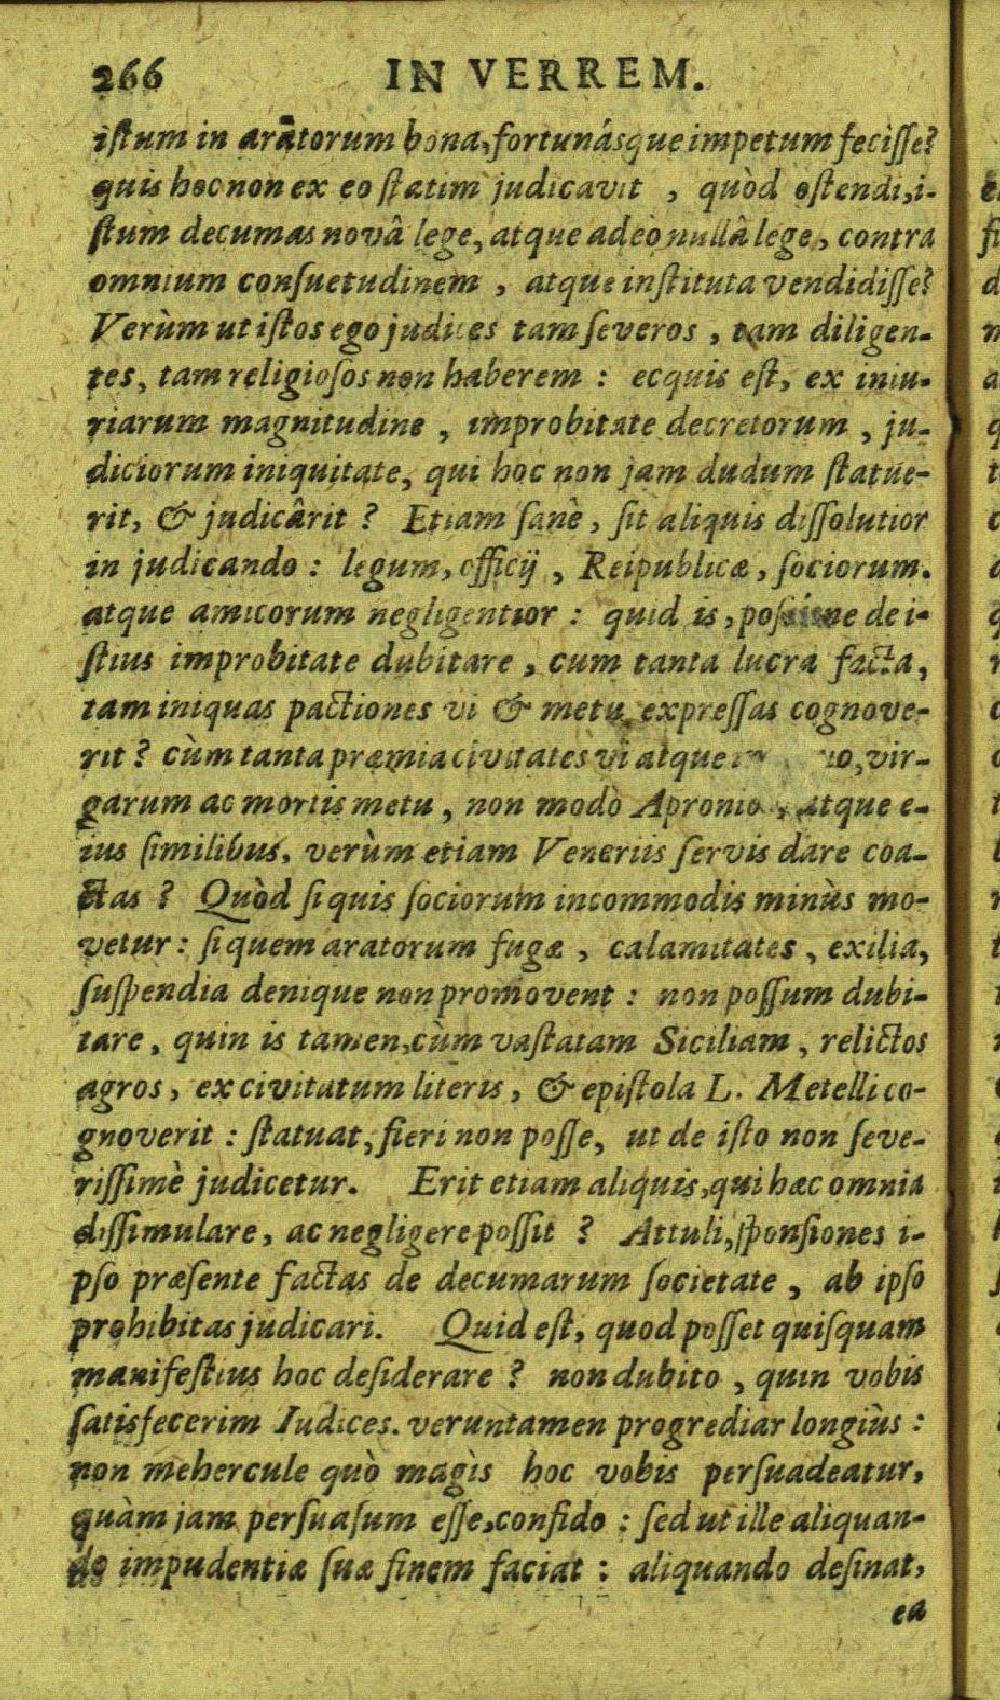 266 IN VERREM.
istum in arātorum bona, fortunásque impetum fecisse?
quis hoc non ex eo statim judicavit , quòd ostendi, i-
stum decumas novâ lege, atque adeò nullâ lege, contra
omnium consuetudinem , atque instituta vendidisse?
Verùm ut istos ego judices tam severos , tam diligen-
tes, tam religiosos non haberem : ecquis est, ex iniu-
riarum magnitudine , improbitate decretorum , ju-
diciorum iniquitate, qui hoc non jam dudum statue-
rit, & judicârit ? Etiam sanè, sit aliquis dissolutior
in judicando : legum, officij , Reipublicæ, sociorum.
atque amicorum negligentior : quid is, de i-
stius improbitate dubitare , cum tanta lucra facta,
tam iniquas pactiones vi & metu expressas cognove-
rit ? cùm tanta præmia civitates vi atque vir-
garum ac mortis metu, non modò Apronio , atque e-
ius similibus, verùm etiam Veneriis servis dare coa-
ctas ? Quòd si quis sociorum incommodis minùs mo-
vetur : si quem aratorum fugæ , calamitates , exilia,
suspendia denique non promovent : non possum dubi-
tare, quin is tamen, cùm vastatam Siciliam, relictos
agros, ex civitatum literis, & epistola L. Metelli co-
gnoverit : statuat, fieri non posse, ut de isto non seve-
rissimè judicetur. Erit etiam aliquis, qui hæc omnia
dissimulare, ac negligere possit ? Attuli, sponsiones i-
pso præsente factas de decumarum societate , ab ipso
prohibitas judicari. Quid est, quod posset quisquam
manifestius hoc desiderare ? non dubito , quin vobis
satisfecerim Iudices. veruntamen progrediar longiùs :
non mehercule quò magìs hoc vobis persuadeatur,
quàm jam persuasum esse, confido : sed ut ille aliquan-
do impudentiæ suæ finem faciat : aliquando desinat,
ea